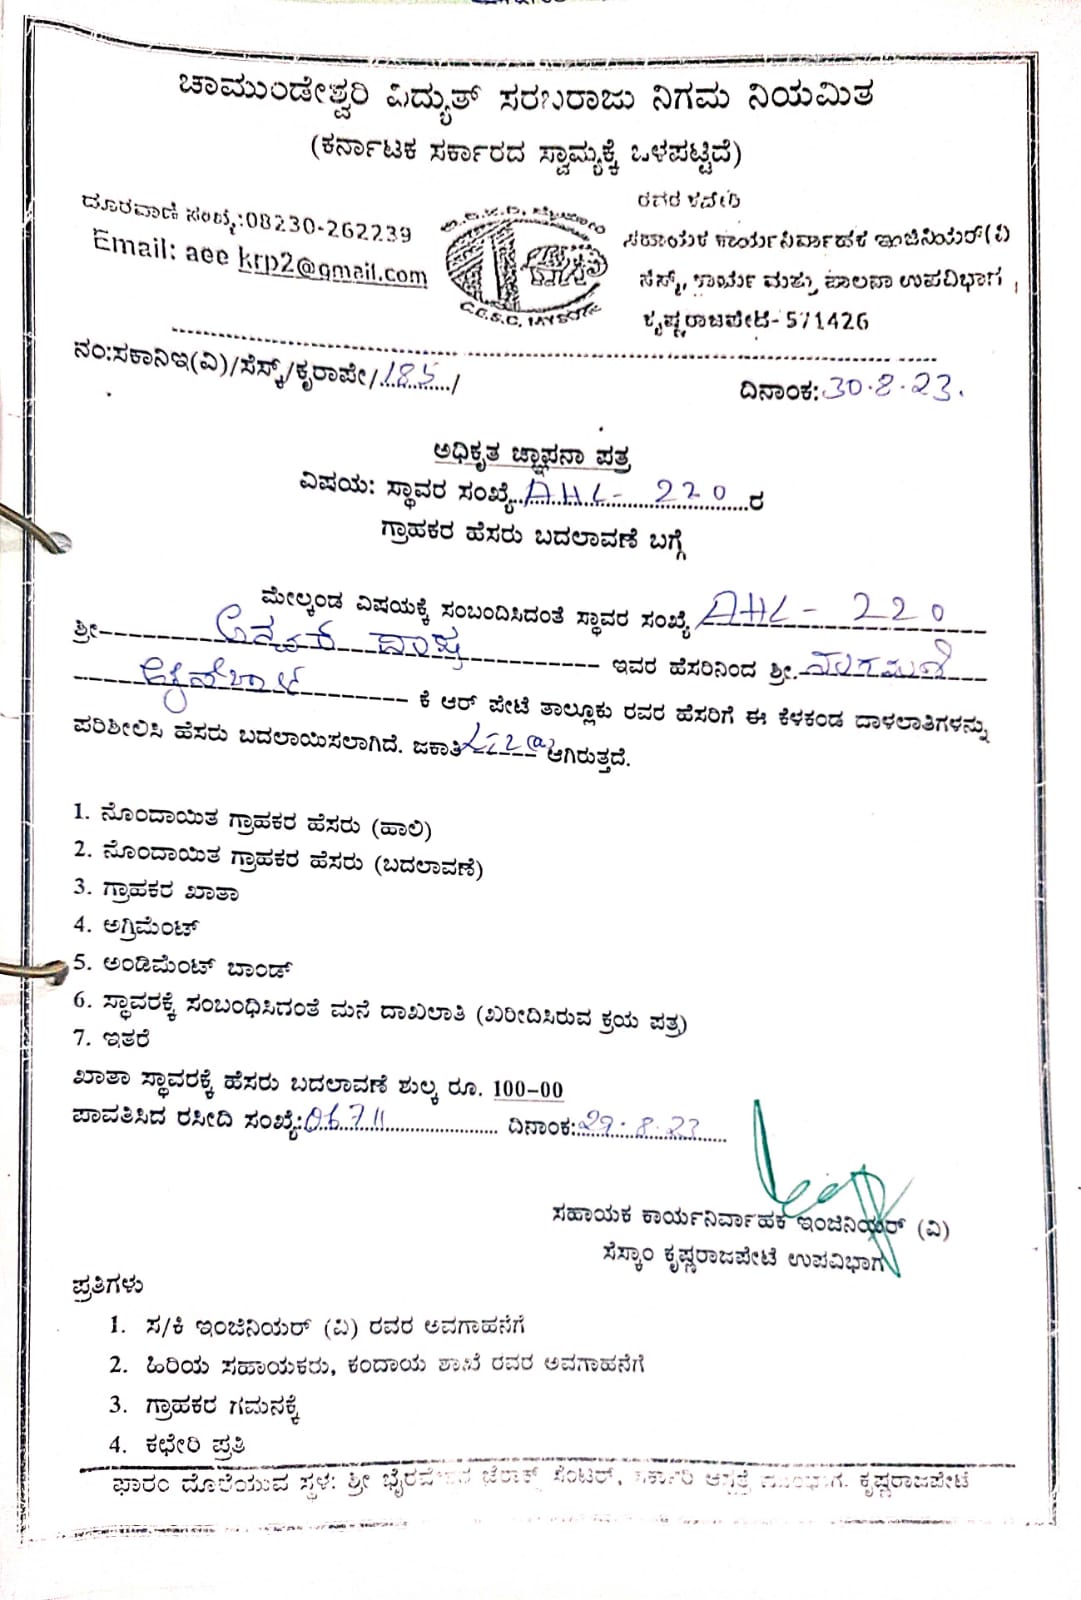 ಚಾಮುಂಡೇಶ್ವರಿ ವಿದ್ಯುತ್ ಸರಬರಾಜು ನಿಗಮ ನಿಯಮಿತ
(ಕರ್ನಾಟಕ ಸರ್ಕಾರದ ಸ್ವಾಮ್ಯಕ್ಕೆ ಒಳಪಟ್ಟಿದೆ)
ದೂರವಾಣಿ ಸಂಖ್ಯೆ:08230-262239
Email: aee krp2@gmail.com
ರವರ ಕಛೇರಿ
ಸಹಾಯಕ ಕಾರ್ಯನಿರ್ವಾಹಕ ಇಂಜಿನಿಯರ್(ವಿ
ಸೆಸ್ಕ್, ಕಾರ್ಯ ಮತ್ತು ಪಾಲನಾ ಉಪವಿಭಾಗ,
ಕೃಷ್ಣರಾಜಪೇಟೆ-571426
ನಂ:ಸಕಾನಿಇ(ವಿ)/ಸೆಸ್ಕ್/ಕೃರಾಪೇ/185/
ದಿನಾಂಕ:30.8.23.
ಅಧಿಕೃತ ಜ್ಞಾಪನಾ ಪತ್ರ
ವಿಷಯ: ಸ್ಥಾವರ ಸಂಖ್ಯೆ AHL-220 ರ
ಗ್ರಾಹಕರ ಹೆಸರು ಬದಲಾವಣೆ ಬಗ್ಗೆ
ಮೇಲ್ಕಂಡ ವಿಷಯಕ್ಕೆ ಸಂಬಂದಿಸಿದಂತೆ ಸ್ಥಾವರ ಸಂಖ್ಯೆ AHL-220
ಶ್ರೀ ಇವರ ಹೆಸರಿನಿಂದ ಶ್ರೀ.
ಕೆ ಆರ್ ಪೇಟೆ ತಾಲ್ಲೂಕು ರವರ ಹೆಸರಿಗೆ ಈ ಕೆಳಕಂಡ ದಾಳಲಾತಿಗಳನ್ನು
ಪರಿಶೀಲಿಸಿ ಹೆಸರು ಬದಲಾಯಿಸಲಾಗಿದೆ. ಜಕಾತಿ ಆಗಿರುತ್ತದೆ.
1. ನೊಂದಾಯಿತ ಗ್ರಾಹಕರ ಹೆಸರು (ಹಾಲಿ)
2. ನೊಂದಾಯಿತ ಗ್ರಾಹಕರ ಹೆಸರು (ಬದಲಾವಣೆ)
3. ಗ್ರಾಹಕರ ಖಾತಾ
4. ಅಗ್ರಿಮೆಂಟ್
5. ಅಂಡಿಮೆಂಟ್ ಬಾಂಡ್
6. ಸ್ಥಾವರಕ್ಕೆ ಸಂಬಂಧಿಸಿದಂತೆ ಮನೆ ದಾಖಲಾತಿ (ಖರೀದಿಸಿರುವ ಕ್ರಯ ಪತ್ರ)
7. ಇತರೆ
ಖಾತಾ ಸ್ಥಾವರಕ್ಕೆ ಹೆಸರು ಬದಲಾವಣೆ ಶುಲ್ಕ ರೂ. 100-00
ಪಾವತಿಸಿದ ರಸೀದಿ ಸಂಖ್ಯೆ:06711 ದಿನಾಂಕ:29.8.23
ಸಹಾಯಕ ಕಾರ್ಯನಿರ್ವಾಹಕ ಇಂಜಿನಿಯರ್ (ವಿ)
ಸೆಸ್ಕಾಂ ಕೃಷ್ಣರಾಜಪೇಟೆ ಉಪವಿಭಾಗ
ಪ್ರತಿಗಳು
1. ಸ/ಕಿ ಇಂಜಿನಿಯರ್ (ವಿ) ರವರ ಅವಗಾಹನೆಗೆ
2. ಹಿರಿಯ ಸಹಾಯಕರು, ಕಂದಾಯ ಶಾಖೆ ರವರ ಅವಗಾಹನೆಗೆ
3. ಗ್ರಾಹಕರ ಗಮನಕ್ಕೆ
4. ಕಛೇರಿ ಪ್ರತಿ
ಫಾರಂ ದೊರೆಯುವ ಸ್ಥಳ: ಶ್ರೀ ಭೈರವೇಶ್ವರ ಜೆರಾಕ್ಸ್ ಸೆಂಟರ್, ಸರ್ಕಾರಿ ಆಸ್ಪತ್ರೆ ಮುಂಭಾಗ. ಕೃಷ್ಣರಾಜಪೇಟೆ